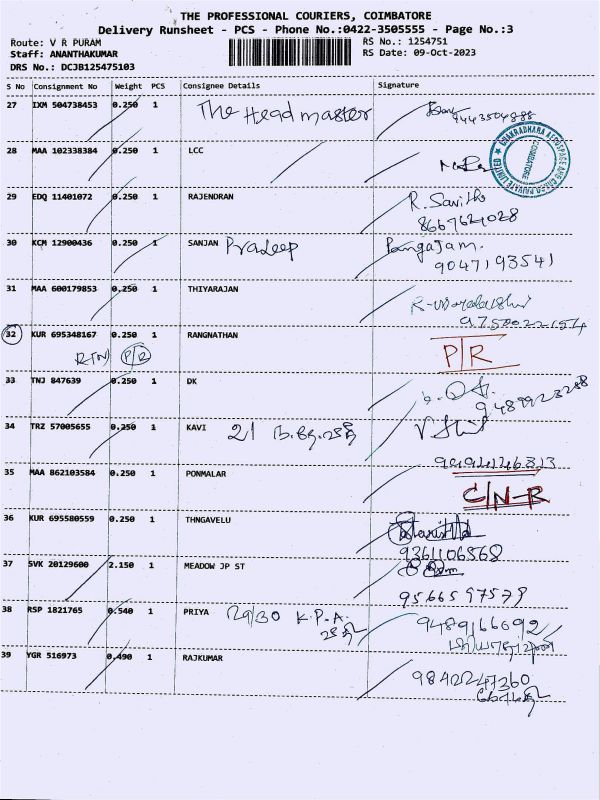 THE PROFESSIONAL COURIERS, COIMBATORE
Delivery Runsheet - PCS - Phone No.:0422-3505555 - Page No.:3
Route: V R PURAM
Staff: ANANTHAKUMAR
DRS No.: DCJB125475103
RS No.: 1254751
RS Date: 09-Oct-2023
S No Consignment No Weight PCS Consignee Details Signature
27 IXM 504738453 0.250 1 The Head master
9443504888
28 MAA 102338384 0.250 1 LCC
COIMBATORE
29 EDQ 11401072 0.250 1 RAJENDRAN R. Savitha
8667621028
30 KCM 12900436 0.250 1 SANJAN Pradeep Pangajam.
9047193541
31 MAA 600179853 0.250 1 THIYARAJAN
32 KUR 695348167 0.250 1 RANGNATHAN P/R
RTN P/R
33 TNJ 847639 0.250 1 DK
9489923288
34 TRZ 57005655 0.250 1 KAVI 21
35 MAA 862103584 0.250 1 PONMALAR C/N-R
36 KUR 695580559 0.250 1 THNGAVELU
9361106568
37 SVK 20129600 2.150 1 MEADOW JP ST
9566597579
38 RSP 1821765 0.540 1 PRIYA 29/30 K.P.A. 9489166692
39 YGR 516973 0.490 1 RAJKUMAR
9842247360